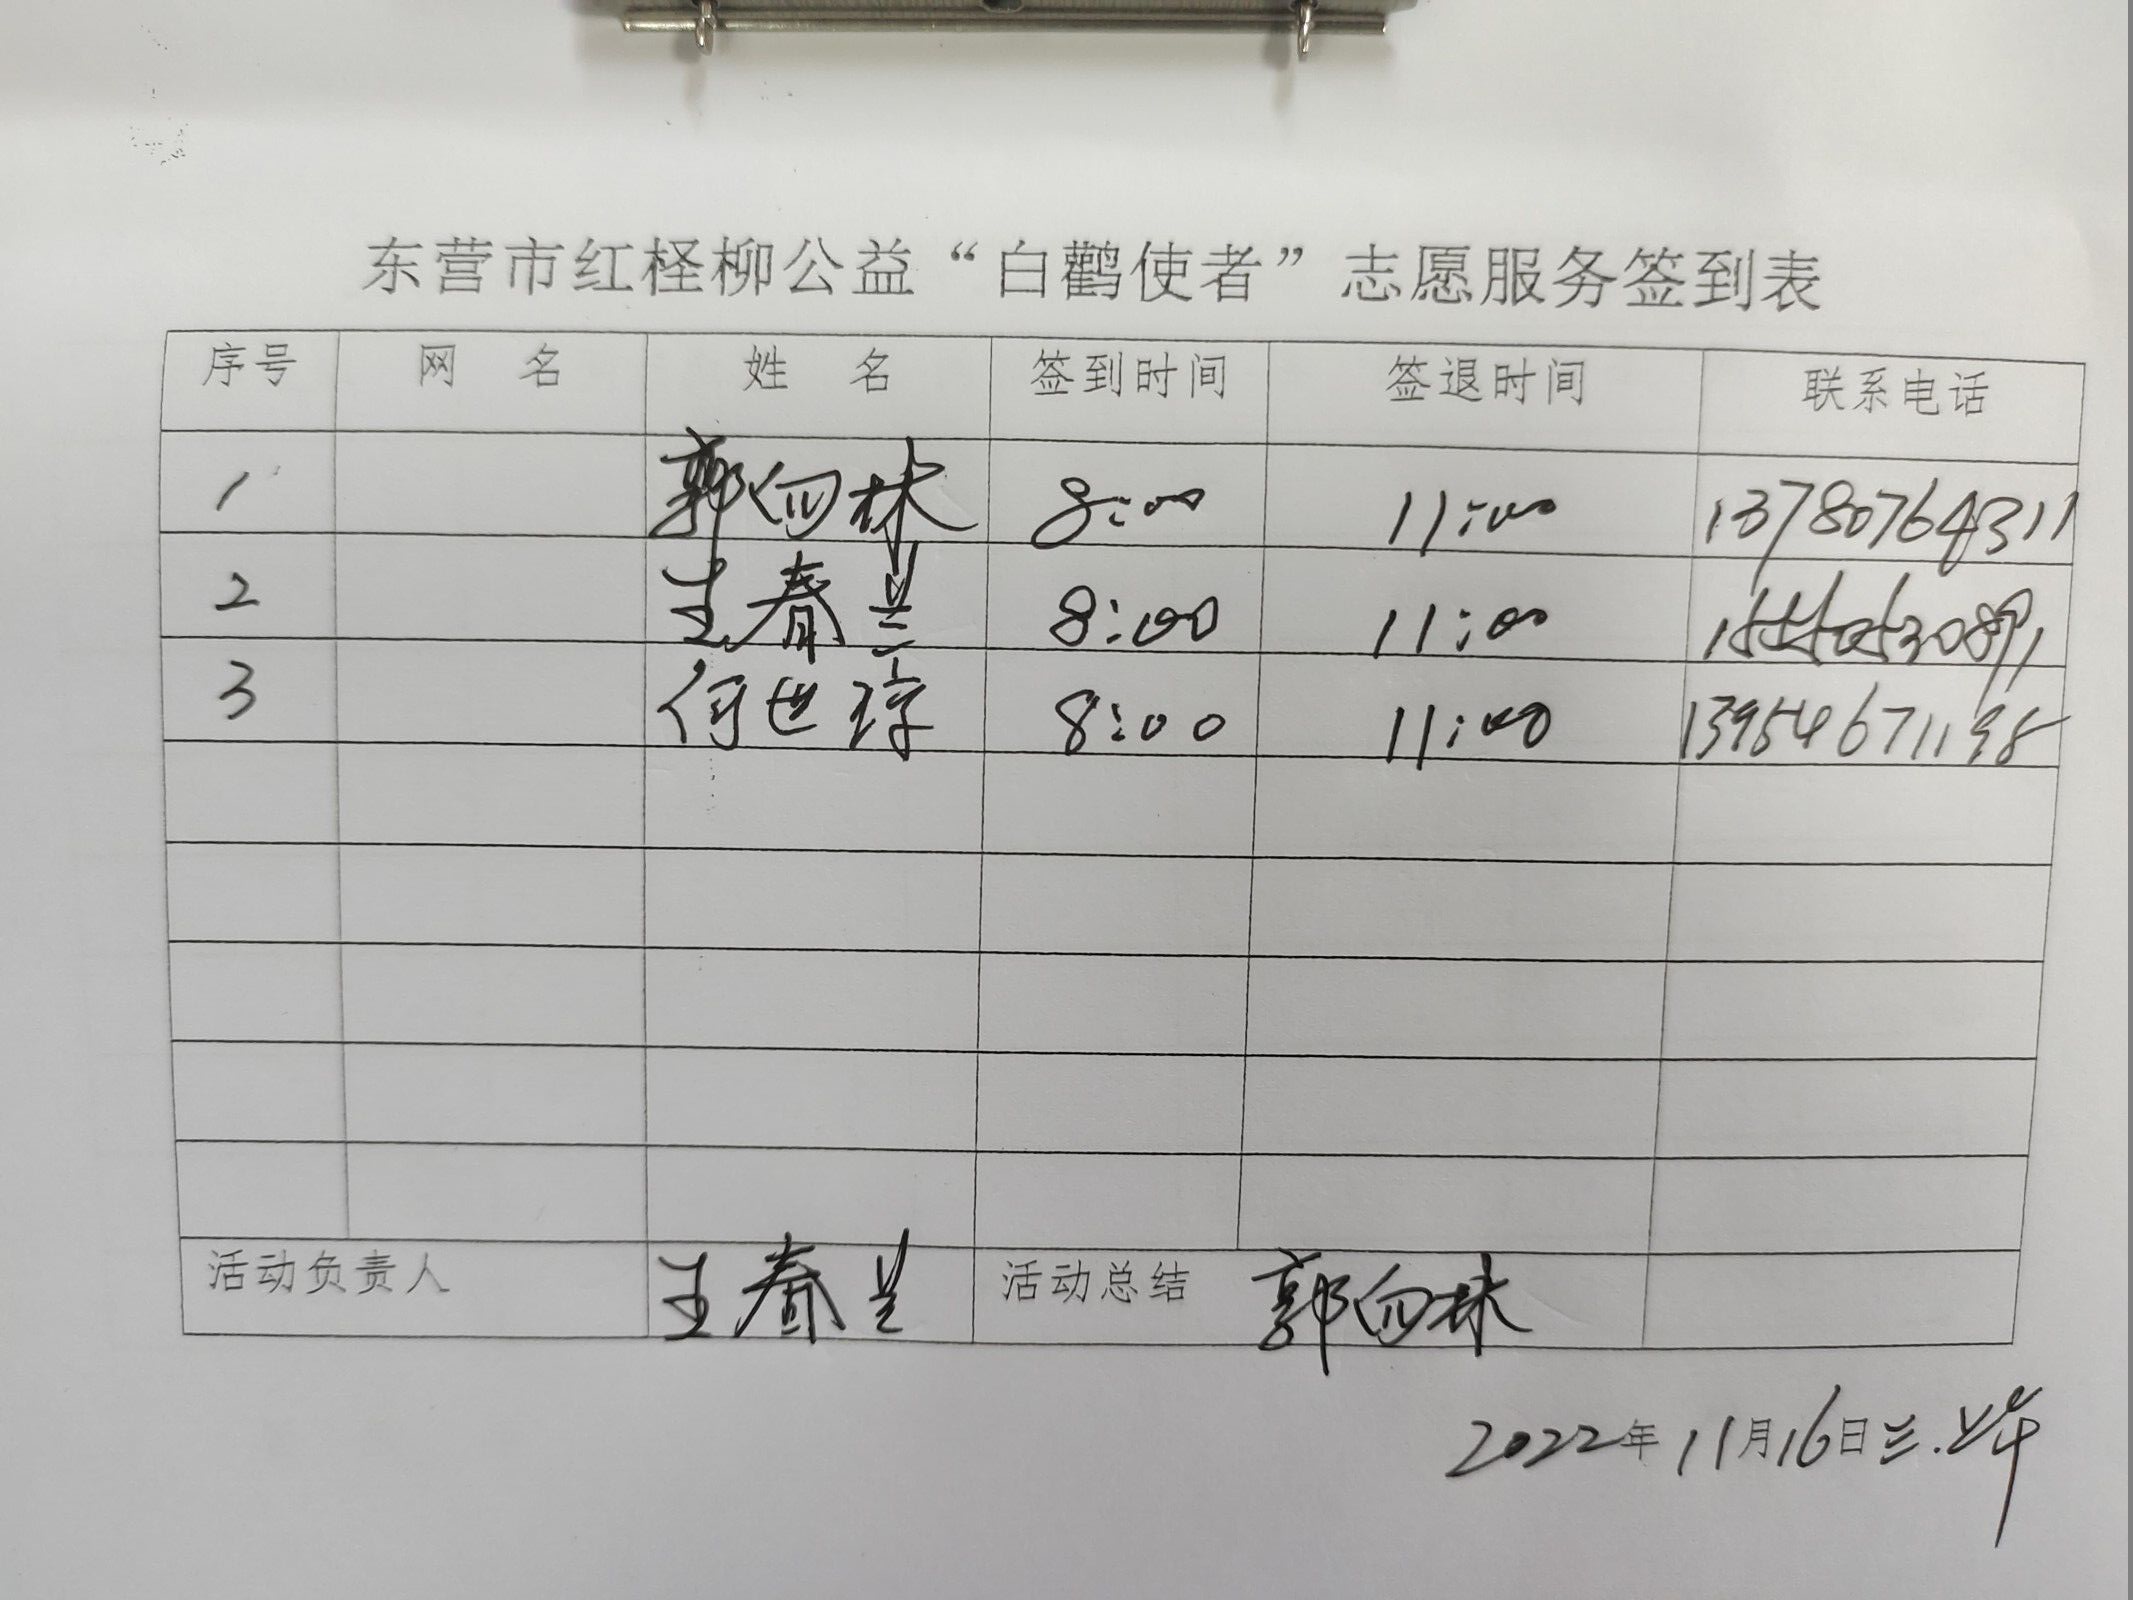 东营市红柽柳公益“白鹳使者”志愿服务签到表
序号 网 名 姓 名 签到时间 签退时间 联系电话
1 郭向林 8:00 11:00 13780764311
2 王春兰 8:00 11:00
3 何世琼 8:00 11:00 13954671198
活动负责人 王春兰 活动总结 郭向林
2022年11月16日 三.上午